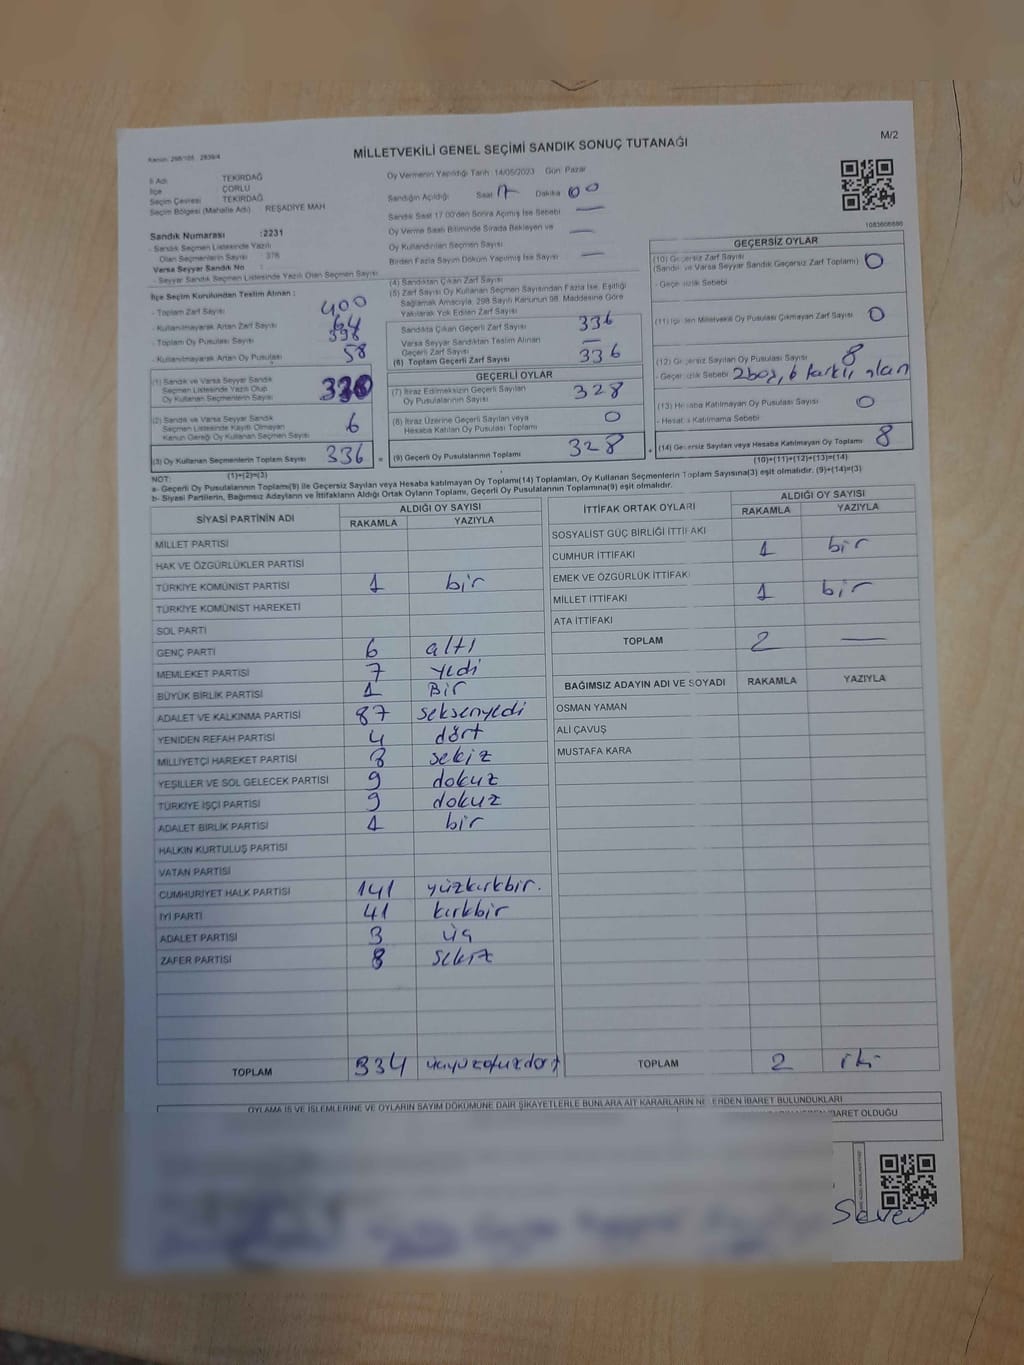 Kanun: 298/105 2839/4
MİLLETVEKİLİ GENEL SEÇİMİ SANDIK SONUÇ TUTANAĞI
M/2
İl Adı TEKİRDAĞ
İlçe ÇORLU
Seçim Çevresi TEKİRDAĞ
Seçim Bölgesi (Mahalle Adı) REŞADİYE MAH
Sandık Numarası :2231
- Sandık Seçmen Listesinde Yazılı
Olan Seçmenlerin Sayısı 376
Varsa Seyyar Sandık No :
- Seyyar Sandık Seçmen Listesinde Yazılı Olan Seçmen Sayısı
İlçe Seçim Kurulundan Teslim Alınan :
- Toplam Zarf Sayısı 400
- Kullanılmayarak Artan Zarf Sayısı 64
- Toplam Oy Pusulası Sayısı 398
- Kullanılmayarak Artan Oy Pusulası 58
(1) Sandık ve Varsa Seyyar Sandık
Seçmen Listesinde Yazılı Olup
Oy Kullanan Seçmenlerin Sayısı 330
(2) Sandık ve Varsa Seyyar Sandık
Seçmen Listesinde Kayıtlı Olmayan
Kanun Gereği Oy Kullanan Seçmen Sayısı 6
(3) Oy Kullanan Seçmenlerin Toplam Sayısı 336 =
(1)+(2)=(3)
Oy Vermenin Yapıldığı Tarih: 14/05/2023 Gün: Pazar
Sandığın Açıldığı Saat 17 Dakika 00
Sandık Saat 17.00'den Sonra Açılmış İse Sebebi —
Oy Verme Saati Bitiminde Sırada Bekleyen ve
Oy Kullandırılan Seçmen Sayısı —
Birden Fazla Sayım Döküm Yapılmış İse Sayısı —
(4) Sandıktan Çıkan Zarf Sayısı
(5) Zarf Sayısı Oy Kullanan Seçmen Sayısından Fazla İse, Eşitliği
Sağlamak Amacıyla, 298 Sayılı Kanunun 98. Maddesine Göre
Yakılarak Yok Edilen Zarf Sayısı
Sandıkta Çıkan Geçerli Zarf Sayısı 336
Varsa Seyyar Sandıktan Teslim Alınan
Geçerli Zarf Sayısı —
(6) Toplam Geçerli Zarf Sayısı 336
GEÇERLİ OYLAR
(7) İtiraz Edilmeksizin Geçerli Sayılan
Oy Pusulalarının Sayısı 328
(8) İtiraz Üzerine Geçerli Sayılan veya
Hesaba Katılan Oy Pusulası Toplamı 0
(9) Geçerli Oy Pusulalarının Toplamı 328 +
1083606886
GEÇERSİZ OYLAR
(10) Geçersiz Zarf Sayısı
(Sandık ve Varsa Seyyar Sandık Geçersiz Zarf Toplamı) 0
- Geçersizlik Sebebi
(11) İçinden Milletvekili Oy Pusulası Çıkmayan Zarf Sayısı 0
(12) Geçersiz Sayılan Oy Pusulası Sayısı 8
- Geçersizlik Sebebi 2 boş, 6 farklı olan
(13) Hesaba Katılmayan Oy Pusulası Sayısı 0
- Hesaba Katılmama Sebebi
(14) Geçersiz Sayılan veya Hesaba Katılmayan Oy Toplamı 8
(10)+(11)+(12)+(13)=(14)
NOT:
a- Geçerli Oy Pusulalarının Toplamı(9) ile Geçersiz Sayılan veya Hesaba katılmayan Oy Toplamı(14) Toplamları, Oy Kullanan Seçmenlerin Toplam Sayısına(3) eşit olmalıdır. (9)+(14)=(3)
b- Siyasi Partilerin, Bağımsız Adayların ve İttifakların Aldığı Ortak Oyların Toplamı, Geçerli Oy Pusulalarının Toplamına(9) eşit olmalıdır.
SİYASİ PARTİNİN ADI ALDIĞI OY SAYISI
RAKAMLA YAZIYLA
MİLLET PARTİSİ
HAK VE ÖZGÜRLÜKLER PARTİSİ
TÜRKİYE KOMÜNİST PARTİSİ 1 bir
TÜRKİYE KOMÜNİST HAREKETİ
SOL PARTİ
GENÇ PARTİ 6 altı
MEMLEKET PARTİSİ 7 yedi
BÜYÜK BİRLİK PARTİSİ 1 Bir
ADALET VE KALKINMA PARTİSİ 87 seksenyedi
YENİDEN REFAH PARTİSİ 4 dört
MİLLİYETÇİ HAREKET PARTİSİ 8 sekiz
YEŞİLLER VE SOL GELECEK PARTİSİ 9 dokuz
TÜRKİYE İŞÇİ PARTİSİ 9 dokuz
ADALET BİRLİK PARTİSİ 1 bir
HALKIN KURTULUŞ PARTİSİ
VATAN PARTİSİ
CUMHURİYET HALK PARTİSİ 141 yüzkırkbir.
İYİ PARTİ 41 kırkbir
ADALET PARTİSİ 3 üç
ZAFER PARTİSİ 8 sekiz
TOPLAM 334 üçyüzotuzdört
İTTİFAK ORTAK OYLARI ALDIĞI OY SAYISI
RAKAMLA YAZIYLA
SOSYALİST GÜÇ BİRLİĞİ İTTİFAKI
CUMHUR İTTİFAKI 1 bir
EMEK VE ÖZGÜRLÜK İTTİFAKI
MİLLET İTTİFAKI 1 bir
ATA İTTİFAKI
TOPLAM 2 —
BAĞIMSIZ ADAYIN ADI VE SOYADI RAKAMLA YAZIYLA
OSMAN YAMAN
ALİ ÇAVUŞ
MUSTAFA KARA
TOPLAM 2 iki
OYLAMA İŞ VE İŞLEMLERİNE VE OYLARIN SAYIM DÖKÜMÜNE DAİR ŞİKAYETLERLE BUNLARA AİT KARARLARIN NELERDEN İBARET BULUNDUKLARI
İBARET OLDUĞU